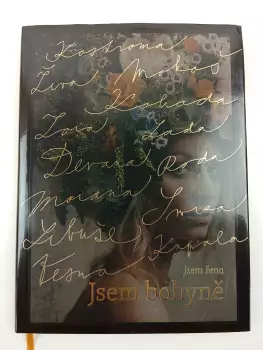 Kostroma
Živa Mokoš
Koliada
Zoia Lada
Devana Roda
Morana Smrsa
Libuše Kupala
Vesna
jsem žena
Jsem bohyně